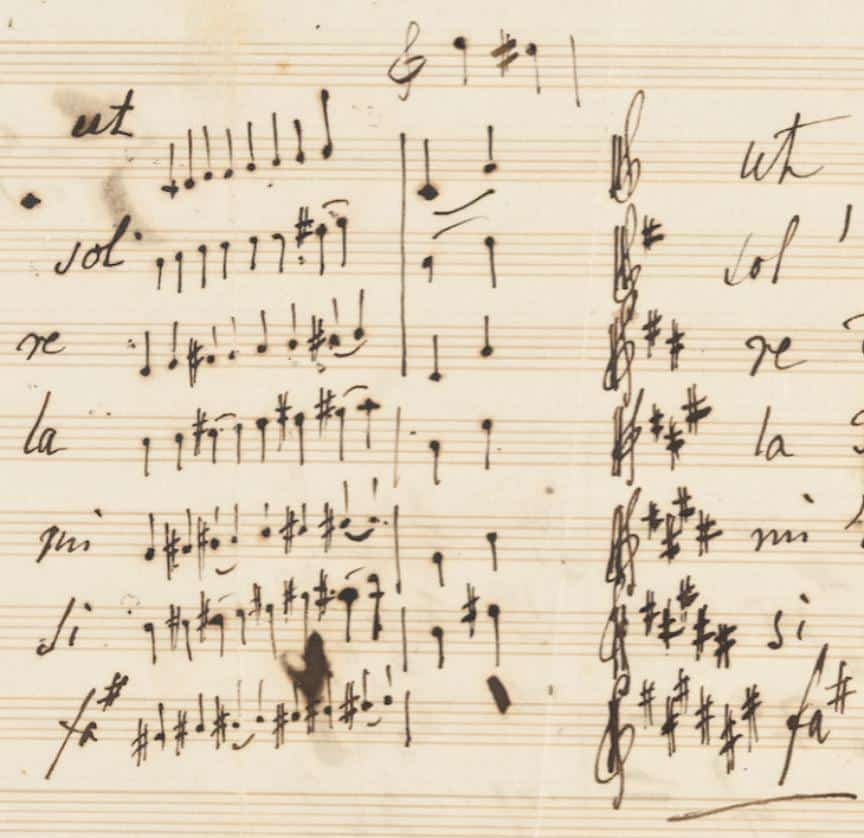 ut ut
sol sol
re re
la la
mi mi
si si
fa# fa#